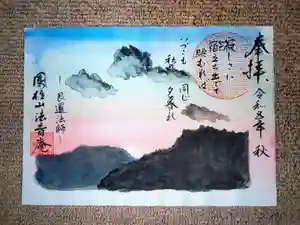 奉拝
令和五年 秋
寂しさに
宿を立ち出でて
眺むれば
いづこも
同じ
秋の
夕暮れ
―良暹法師―